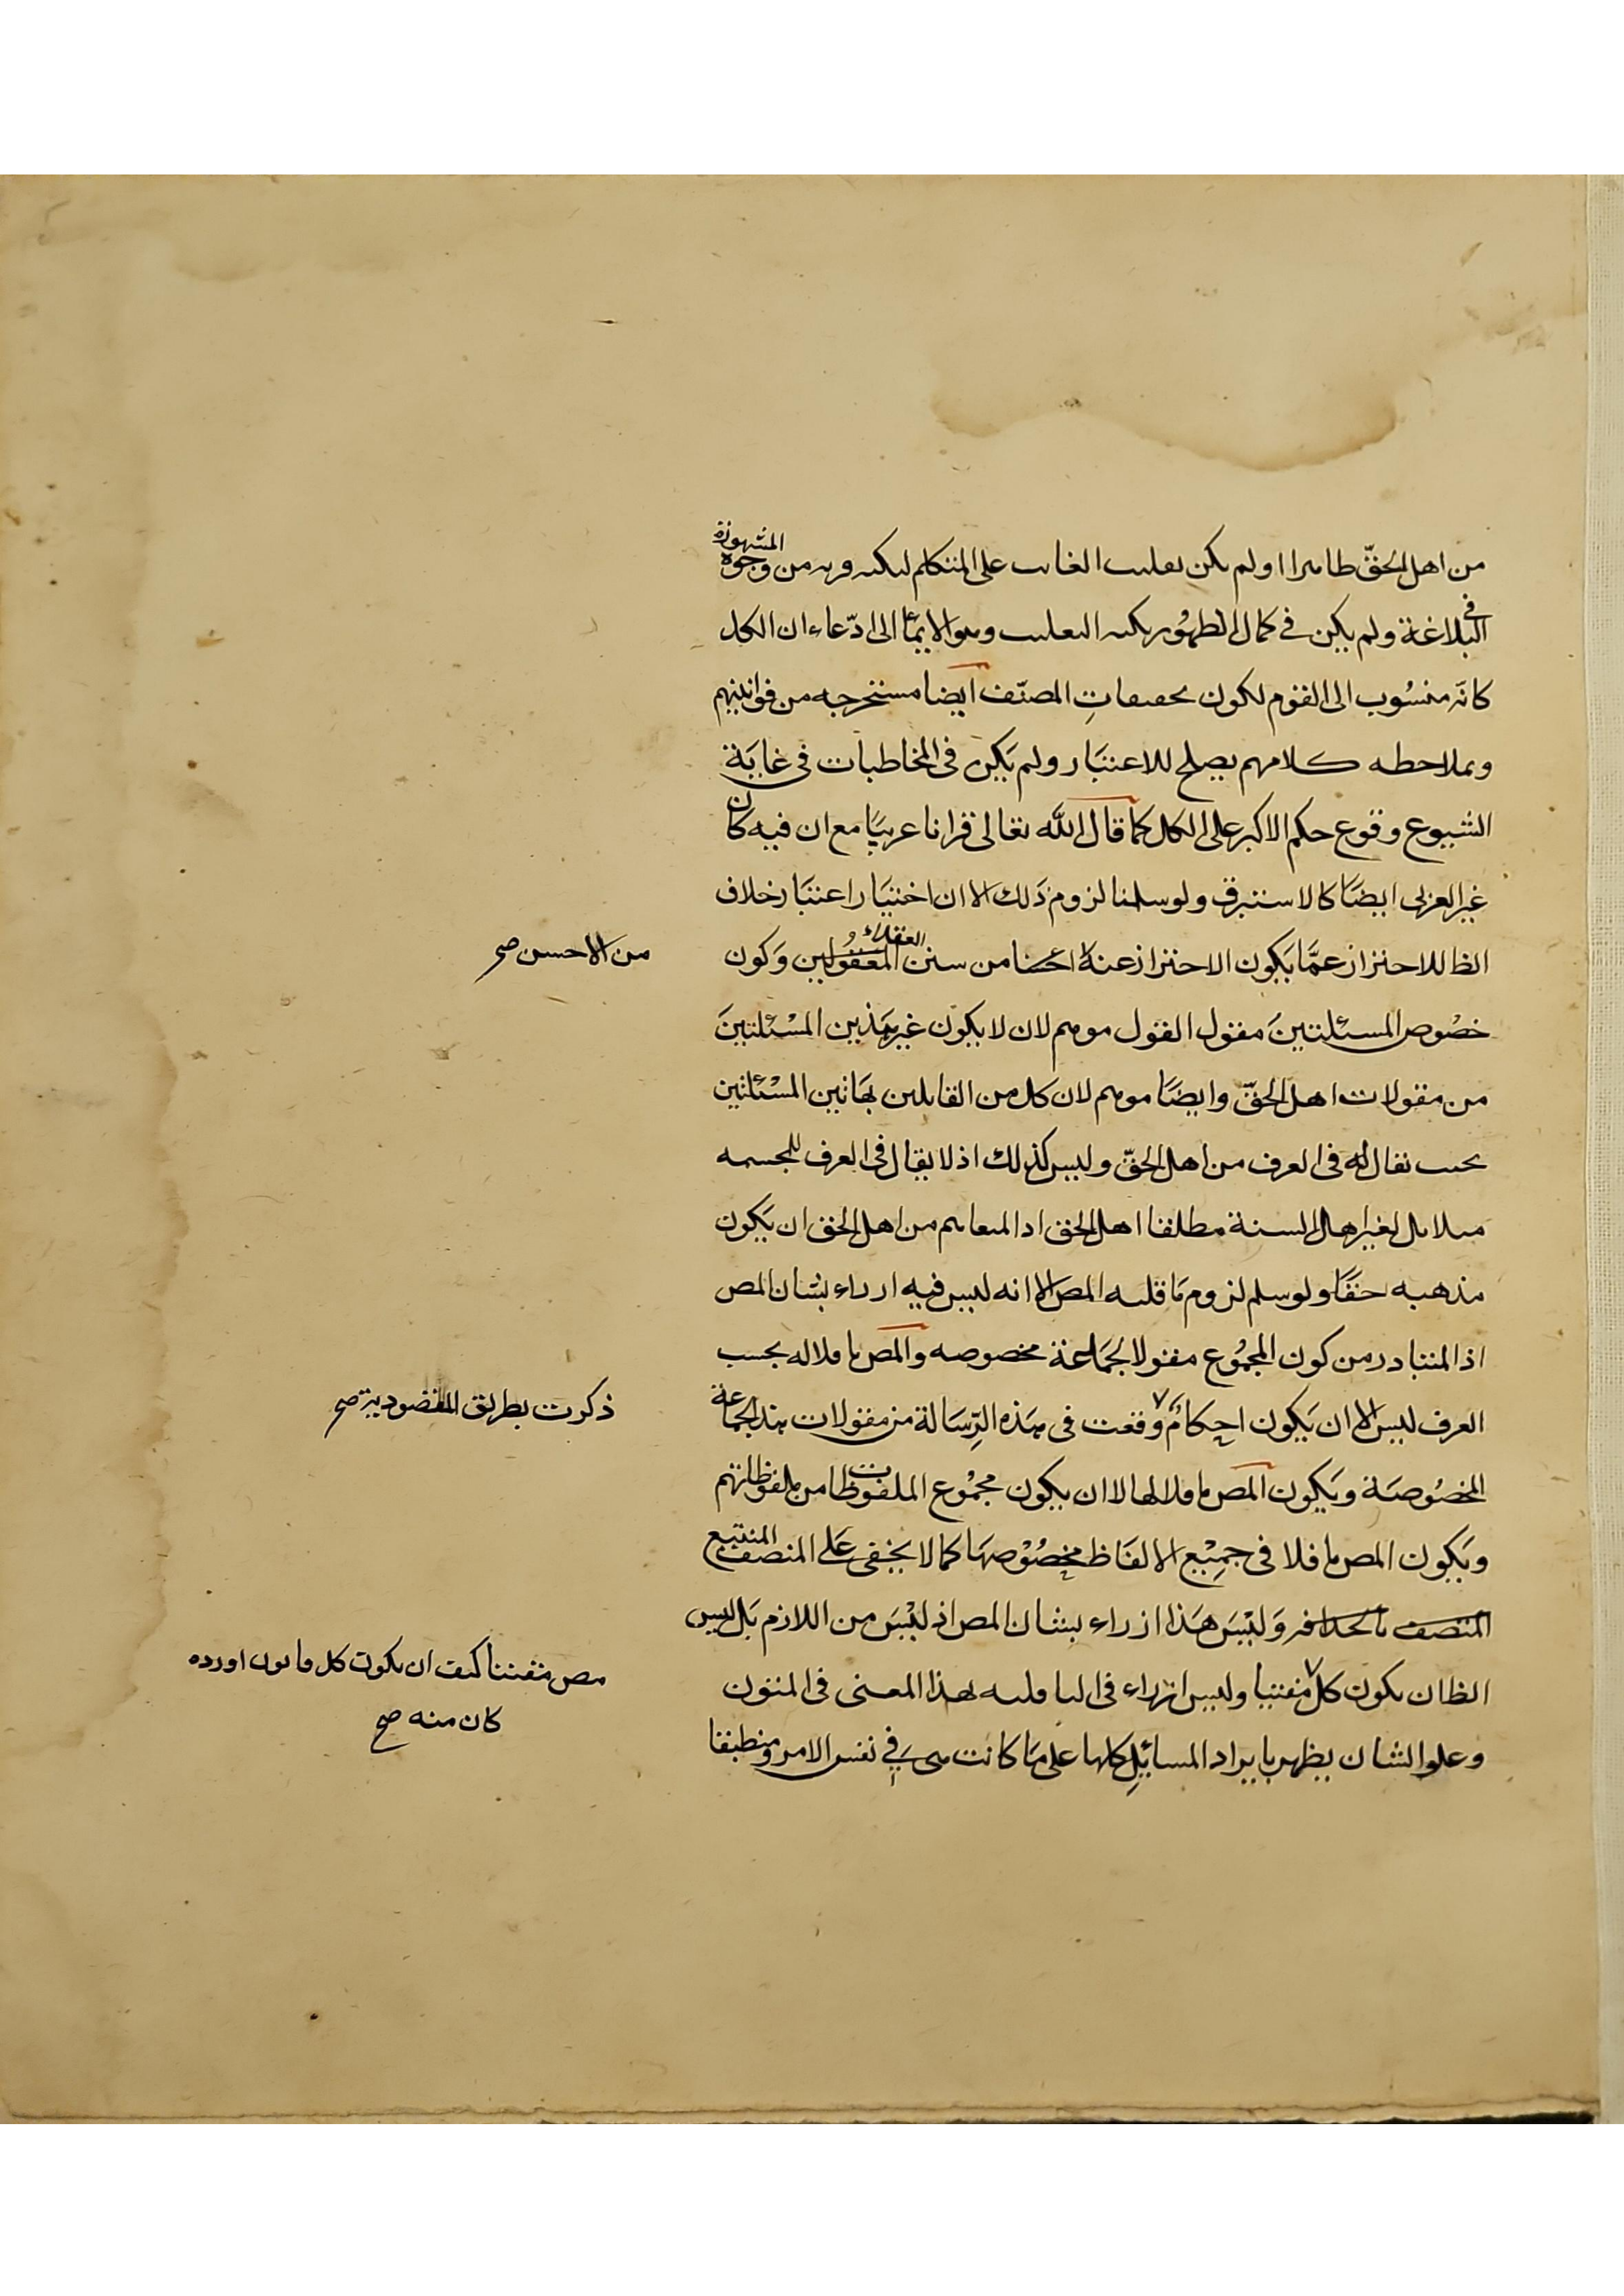 من اهل الحقّ ظاهرا او لم يكن تغليب الغائب على المتكلم لنكتة قريبة من وجوه المشهورة
فى البلاغة ولم يكن فى كمال الظهور نكتة التغليب وهو الايمأ الى ادّعاء ان الكل
كانّه منسُوب الى القوم لكون تحقيقاتِ المصنّف ايضا مستخرجه من قوانينهم
وبملاحظه كلامهم يصلح للاعتبَار ولم يَكن فى المخاطبات فى غايَة
الشيوع وقوع حكم الاكبر على الكل كما قال اللّه تعالى قرانا عربيًا مع ان فيه كان
غير العربى ايضًا كالاستبرق ولو سلمنا لزوم ذَلك الا ان اختيَار اعتبَار خلاف
الظا للاحتراز عمَّا يَكون الاحتراز عنه احسنا من سنن العقلاء المعقولين وَكون
من الاحسن صح
خصُوص المسئلتينَ مقول القول موهم لان لا يكون غير هَذين المسْئلتينَ
من مقولات اهل الحقّ وايضًا موهم لان كل من القايلين بهَاتين المسْئلتين
بحيث يقال له فى العرف من اهل الحقّ وليس كذلك اذ لا يقال فى العرف للمجسمه
مثلا بل لغير اهل السنة مطلقا اهل الحق اذ المتفاهم من اهل الحق ان يَكون
مذهبه حقًا ولو سلم لزوم مَا قلنه المص الا انه ليس فيه ازراء بشان المص
اذ المتبادر من كون المجمُوع مقولا لجمَاعة مخصوصه والمص ناقلا له بحسب
العرف ليس الا ان يَكون احكامٌ وقعت فى هَذه الرِسَالة من مقولات هذه الجماعة
ذكرت بطريق المقصودية صح
المخصُوصَة وَيَكون المص ناقلا لها لا ان يكون مجمُوع الملفوظات من ملفوظاتهم
ويَكون المص ناقلا فى جمِيْع الالفَاظ بخصُوْصهَا كما لا يخفى عَلى المنصف المتتبع
المنصف بالحذافر وَليْسَ هَذا ازراء بشان المص اذ ليْسَ من اللازم بَل ليس
الظا ان يكون كل مفتيا وليس ازراء فى الباقلنه لهذا المعنى فى المتون
مص مفننا كيف ان يكون كل قانون اورده
كان منه صح
وعلو الشان يظهر بايراد المسائِل كلها على مَا كانت هى فِى نفس الامر ومنطبقا